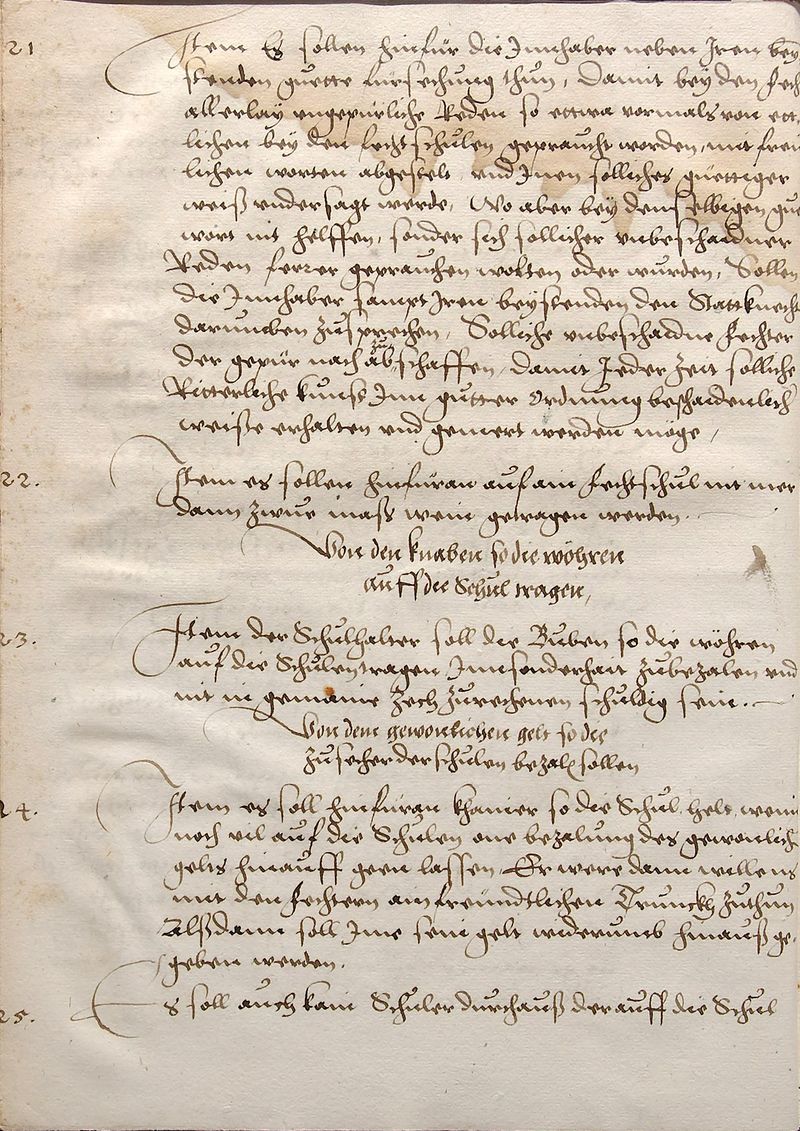 21 Item Es sollen hinfür die Innhaber neben Iren bey
stenden guette fürsechung thun, Damit bey den Fech
allerlay ungepürliche Reden so ettwa vormals von ett
lichen bey den fechtschulen gepraucht worden, mit freu
lichen worten abgestelt und Inen solliches güettiger
weiß undersagt werde, Wo aber bey denselbigen gue
wort nit helffen, sonder sich sollicher unbeschaidner
Reden ferrer geprauchen wolten oder wurden, Sollen
die Innhaber sampt Iren beystenden den Stattknecht
darumben zusprechen, Solliche unbeschaidne Fechter
der gepür nach abzuschaffen, damit Jeder Zeit solliche
Ritterliche kunst Inn gutter Ordnung beschaidenlich
weiße erhalten und gemert werden möge,
22. Item es sollen hinfüran auf ain Fechtschul nit mer
dann zwue mass wein getragen werden.
Von den knaben so die wöhren
auff die Schul tragen,
23. Item der Schulhalter soll die Buben so die wöhren
auf die Schulen tragen Innsonderhait zubezalen und
nit in gemaine Zech zurechenen schuldig sein.
Von dem gewonlichen gelt so die
zusecher der schulen bezaln sollen
24. Item es soll hinfüran khainer so die Schul helt, weni
noch vil auf die Schulen one bezalung des gewonlich
gelts hinauff geen lassen, Er were dann willens
mit den Fechtern ain freundtlichen Trunckh zuthun
Alßdann soll Ime sein gelt widerumb hinauß ge-
geben werden.
25. Es soll auch kain Schuler durchauß der auff die Schul